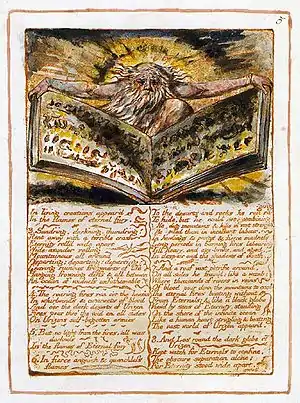 5
In living creations appear'd
In the flames of eternal fury.
3. Sund'ring, dark'ning, thund'ring!
Rent away with a terrible crash
Eternity roll'd wide apart
Wide asunder rolling
Mountainous all around
Departing; departing; departing:
Leaving ruinous fragments of life
Hanging frowning cliffs & all between
An ocean of voidness unfathomable
4. The roaring fires ran o'er the heav'ns
In whirlwinds & cataracts of blood
And o'er the dark desarts of Urizen
Fires pour thro' the void on all sides
On Urizens self-begotten armies.
5. But no light from the fires. all was
darkness
In the flames of Eternal fury
6. In fierce anguish & quenchless
flames
To the desarts and rocks He ran raging
To hide, but He could not: combining
He dug mountains & hills in vast strength,
He piled them in incessant labour,
In howlings & pangs & fierce madness
Long periods in burning fires labouring
Till hoary, and age-broke, and aged,
In despair and the shadows of death.
7. And a roof, vast petrific around,
On all sides He fram'd: like a womb;
Where thousands of rivers in veins
Of blood pour down the mountains to cool
The eternal fires beating without
From Eternals; & like a black globe
View'd by sons of Eternity, standing
On the shore of the infinite ocean
Like a human heart strugling & beating
The vast world of Urizen appear'd.
8. And Los round the dark globe of
Urizen,
Kept watch for Eternals to confine,
The obscure separation alone;
For Eternity stood wide apart,